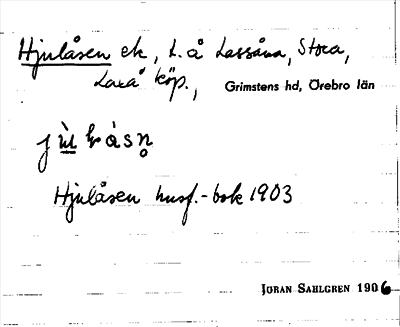 Hjulåsen ek, L.å Lassåna, Stora,
Laxå köp., Grimstens hd, Örebro län
Hjulåsen husf.-bok 1903
JÖRAN SAHLGREN 1906